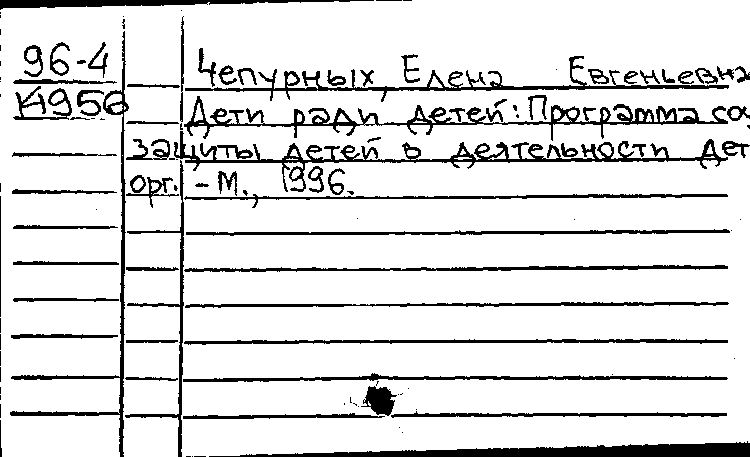 96-4 Чепурных, Елена Евгеньевна
14956 Дети ради детей: Программа со
защиты детей в деятельности дет
орг. - М., 1996.